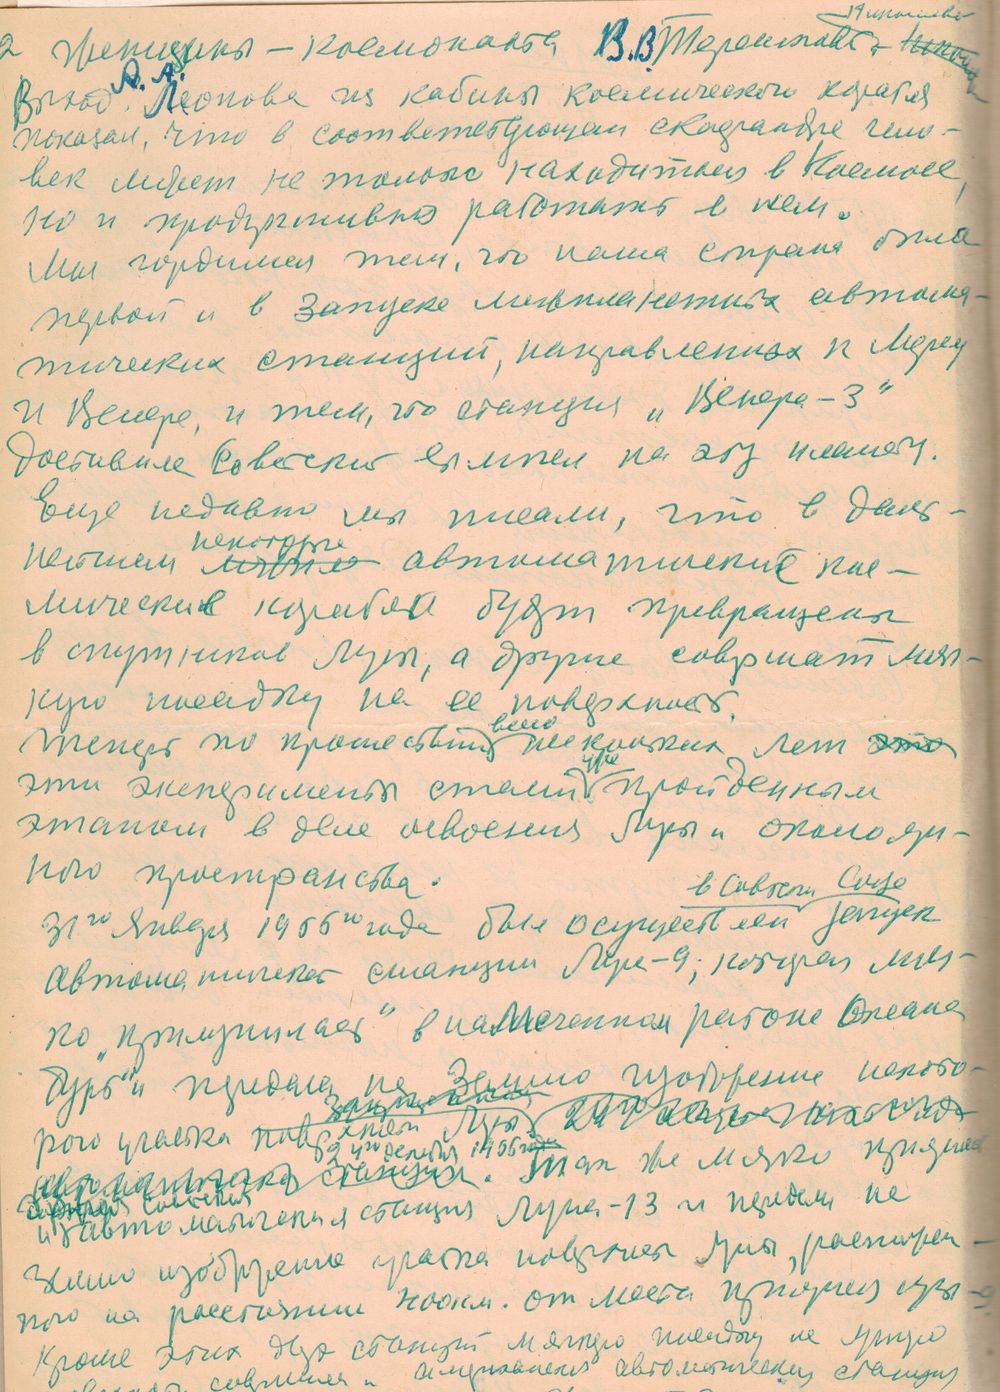 Женщины – космонавта В.В. Терешкова-Николаева
Выход А.А. Леонова из кабины космического корабля
показал, что в соответствующем скафандре чело-
век может не только находиться в Космосе,
но и продуктивно работать в нем.
Мы гордимся тем, что наша страна была
первой и в запуске межпланетных автома-
тических станций, направленных к Марсу
и Венере, и тем, что станция „Венера-3"
доставила Советский вымпел на эту планету.
Еще недавно мы писали, что в даль-
нейшем некоторые автоматические кос-
мические корабли будут превращены
в спутников Луны, а другие совершат мяг-
кую посадку на ее поверхность.
Теперь по прошествии всего нескольких лет
эти эксперименты стали уже пройденным
этапом в деле освоения Луны и окололун-
ного пространства.
31го Января 1966го года был осуществлен в Советском Союзе запуск
автоматической станции Луна-9, которая мяг-
ко „прилунилась" в намеченном районе Океана
Бурь и передала на Землю изображение некото-
рого участка поверхности Луны.
24го декабря 1966 года
Так же мягко
другая советская
автоматическая станция Луна-13 и передала на
Землю изображение участка поверхности Луны, располож-
ного на расстоянии 400км. от места
Кроме этих двух станций мягкую посадку на Луну
совершила и американская автоматическая станция